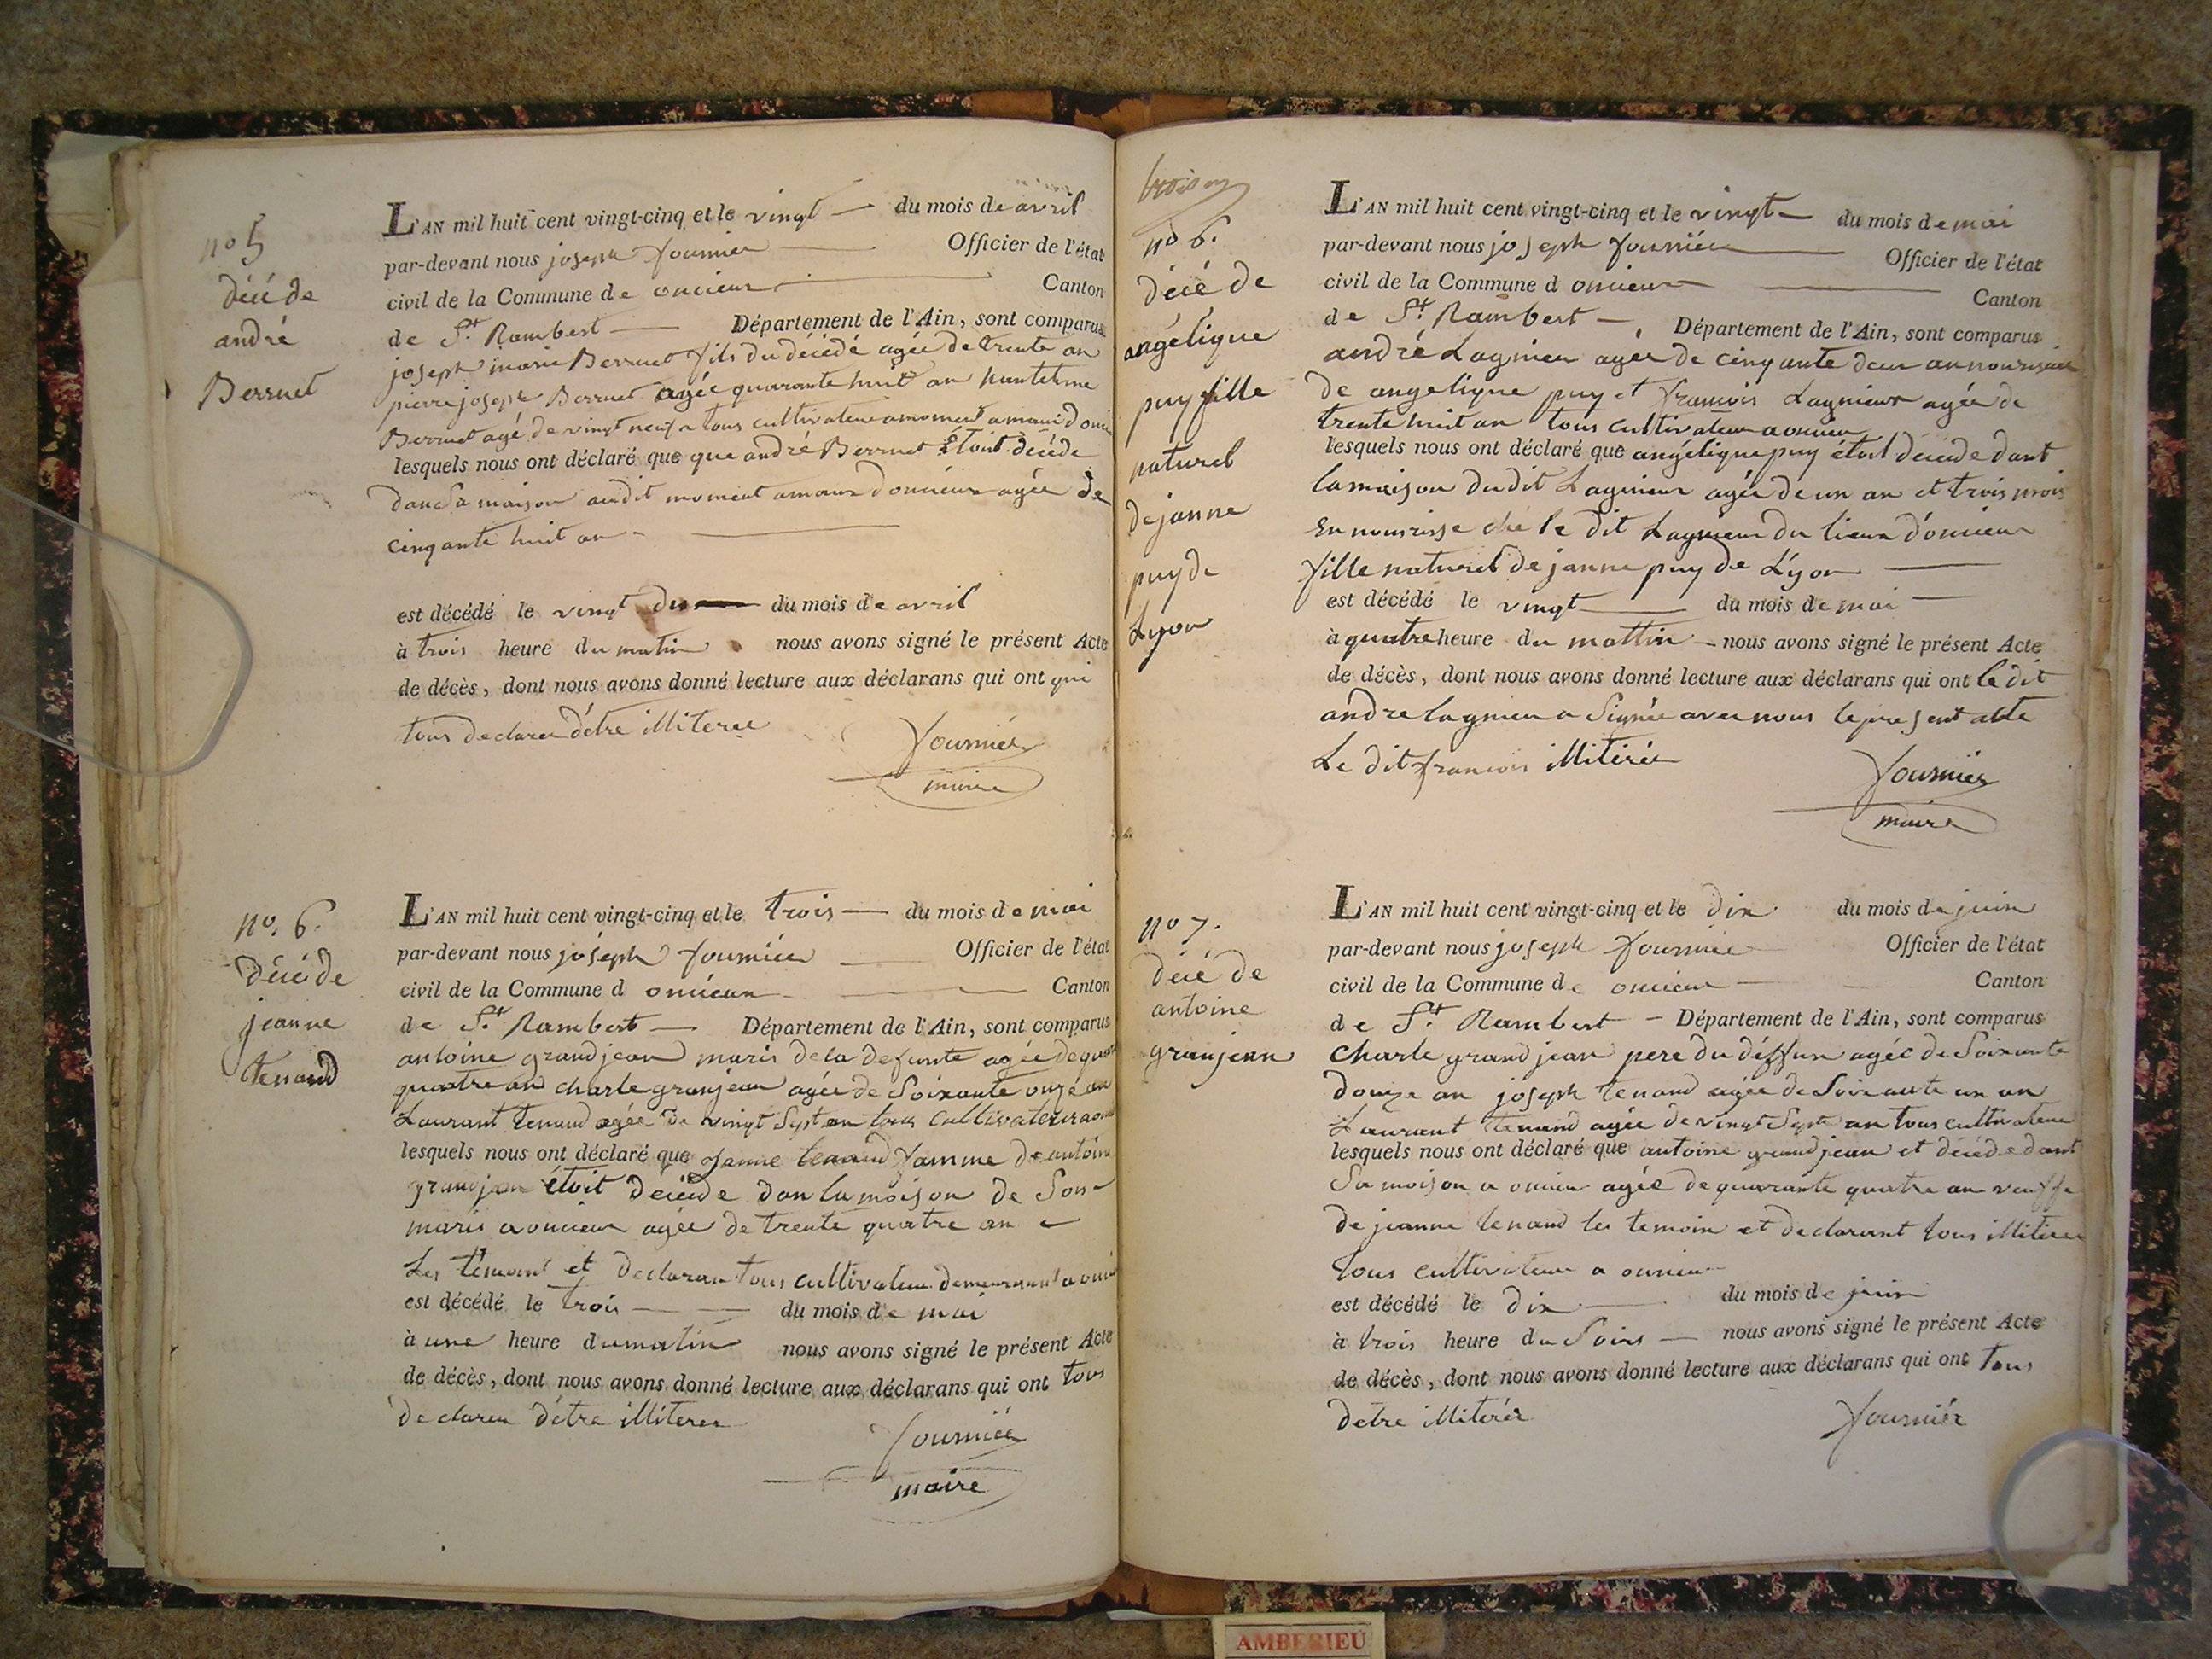 no 5
décéde
andré
Berruet
L'AN mil huit cent vingt-cinq et le vingt du mois de avril
par-devant nous joseph fournier Officier de l'état
civil de la Commune de oncieux Canton
de St. Rambert Département de l'Ain, sont comparus
joseph marie Berruet fils du décédé agée de trente an
pierre joseph Berruet agée quarante huit an
Berruet agé de vingt neuf tous cultivateur
lesquels nous ont déclaré que que andré Berruet étoit décéde
dans sa maison audit moment doncieux agée de
cinqante huit an
est décédé le vingt du du mois de avril
à trois heure du matin nous avons signé le présent Acte
de décès, dont nous avons donné lecture aux déclarans qui ont qui
tous declarer détre illiteree
fournier
maire
no. 6.
décéde
jeanne
tenand
L'AN mil huit cent vingt-cinq et le trois du mois de mai
par-devant nous joséph fournier Officier de l'état
civil de la Commune d oncieux Canton
de St. Rambert Département de l'Ain, sont comparus
antoine grandjean maris dela defunte agée de
quatre an charle granjean agée de Soixante onze an
Laurant tenand agée de vingt Sept an tous cultivateur
lesquels nous ont déclaré que janne tenand famme de antoine
granjan étoit décéde dan la maison de Son
maris a oncieux agée de trente quatre an
Les témoint et declaran tous cultivateur demeurant a
est décédé le trois du mois de mai
à une heure du matin nous avons signé le présent Acte
de décès, dont nous avons donné lecture aux déclarans qui ont tous
declarer détre illiteree
fournier
maire
no 6.
décé de
angélique
puy fille
naturel
de janne
puy de
Lyon
L'AN mil huit cent vingt-cinq et le vingt du mois de mai
par-devant nous joseph fournier Officier de l'état
civil de la Commune d oncieux Canton
de St. Rambert Département de l'Ain, sont comparus
andré Lagnieu agée de cinqante deux an
de angelique puy et francois Lagnieux agée de
trente huit an tous cultivateur a oncieu
lesquels nous ont déclaré que angélique puy étoit décéde dant
la maison du dit Lagnieux agée de un an et trois mois
En nourisse ché le dit Lagnieux du lieux d'oncieux
fille naturel de janne puy de Lyon
est décédé le vingt du mois de mai
à quatre heure du mattin nous avons signé le présent Acte
de décès, dont nous avons donné lecture aux déclarans qui ont le dit
andre lagnieu a Signée avec nous le present acte
Le dit francois illitérée
fournier
maire
no 7.
décé de
antoine
granjean
L'AN mil huit cent vingt-cinq et le dix du mois de juin
par-devant nous joseph fournier Officier de l'état
civil de la Commune de oncieux Canton
de St. Rambert Département de l'Ain, sont comparus
Charle grand jean pere du déffun agée de Soixante
douze an joseph tenand agée de Soixante un an
Laurent tenand agée de vingt Sept an tous cultivateur
lesquels nous ont déclaré que antoine grandjean et décéde dant
Sa maison a oncieu agée de quarante quatre an veuffe
de jeanne tenand les temoin et declarant tous illiteree
tous cultivateur a oncieu
est décédé le dix du mois de juin
à trois heure du Soirs nous avons signé le présent Acte
de décès, dont nous avons donné lecture aux déclarans qui ont tous
detre illiterée
fournier
AMBERIEU